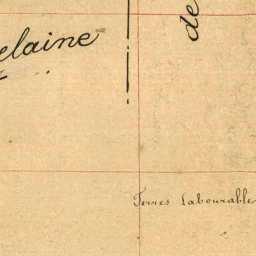 elaine
de
Terres Labourable